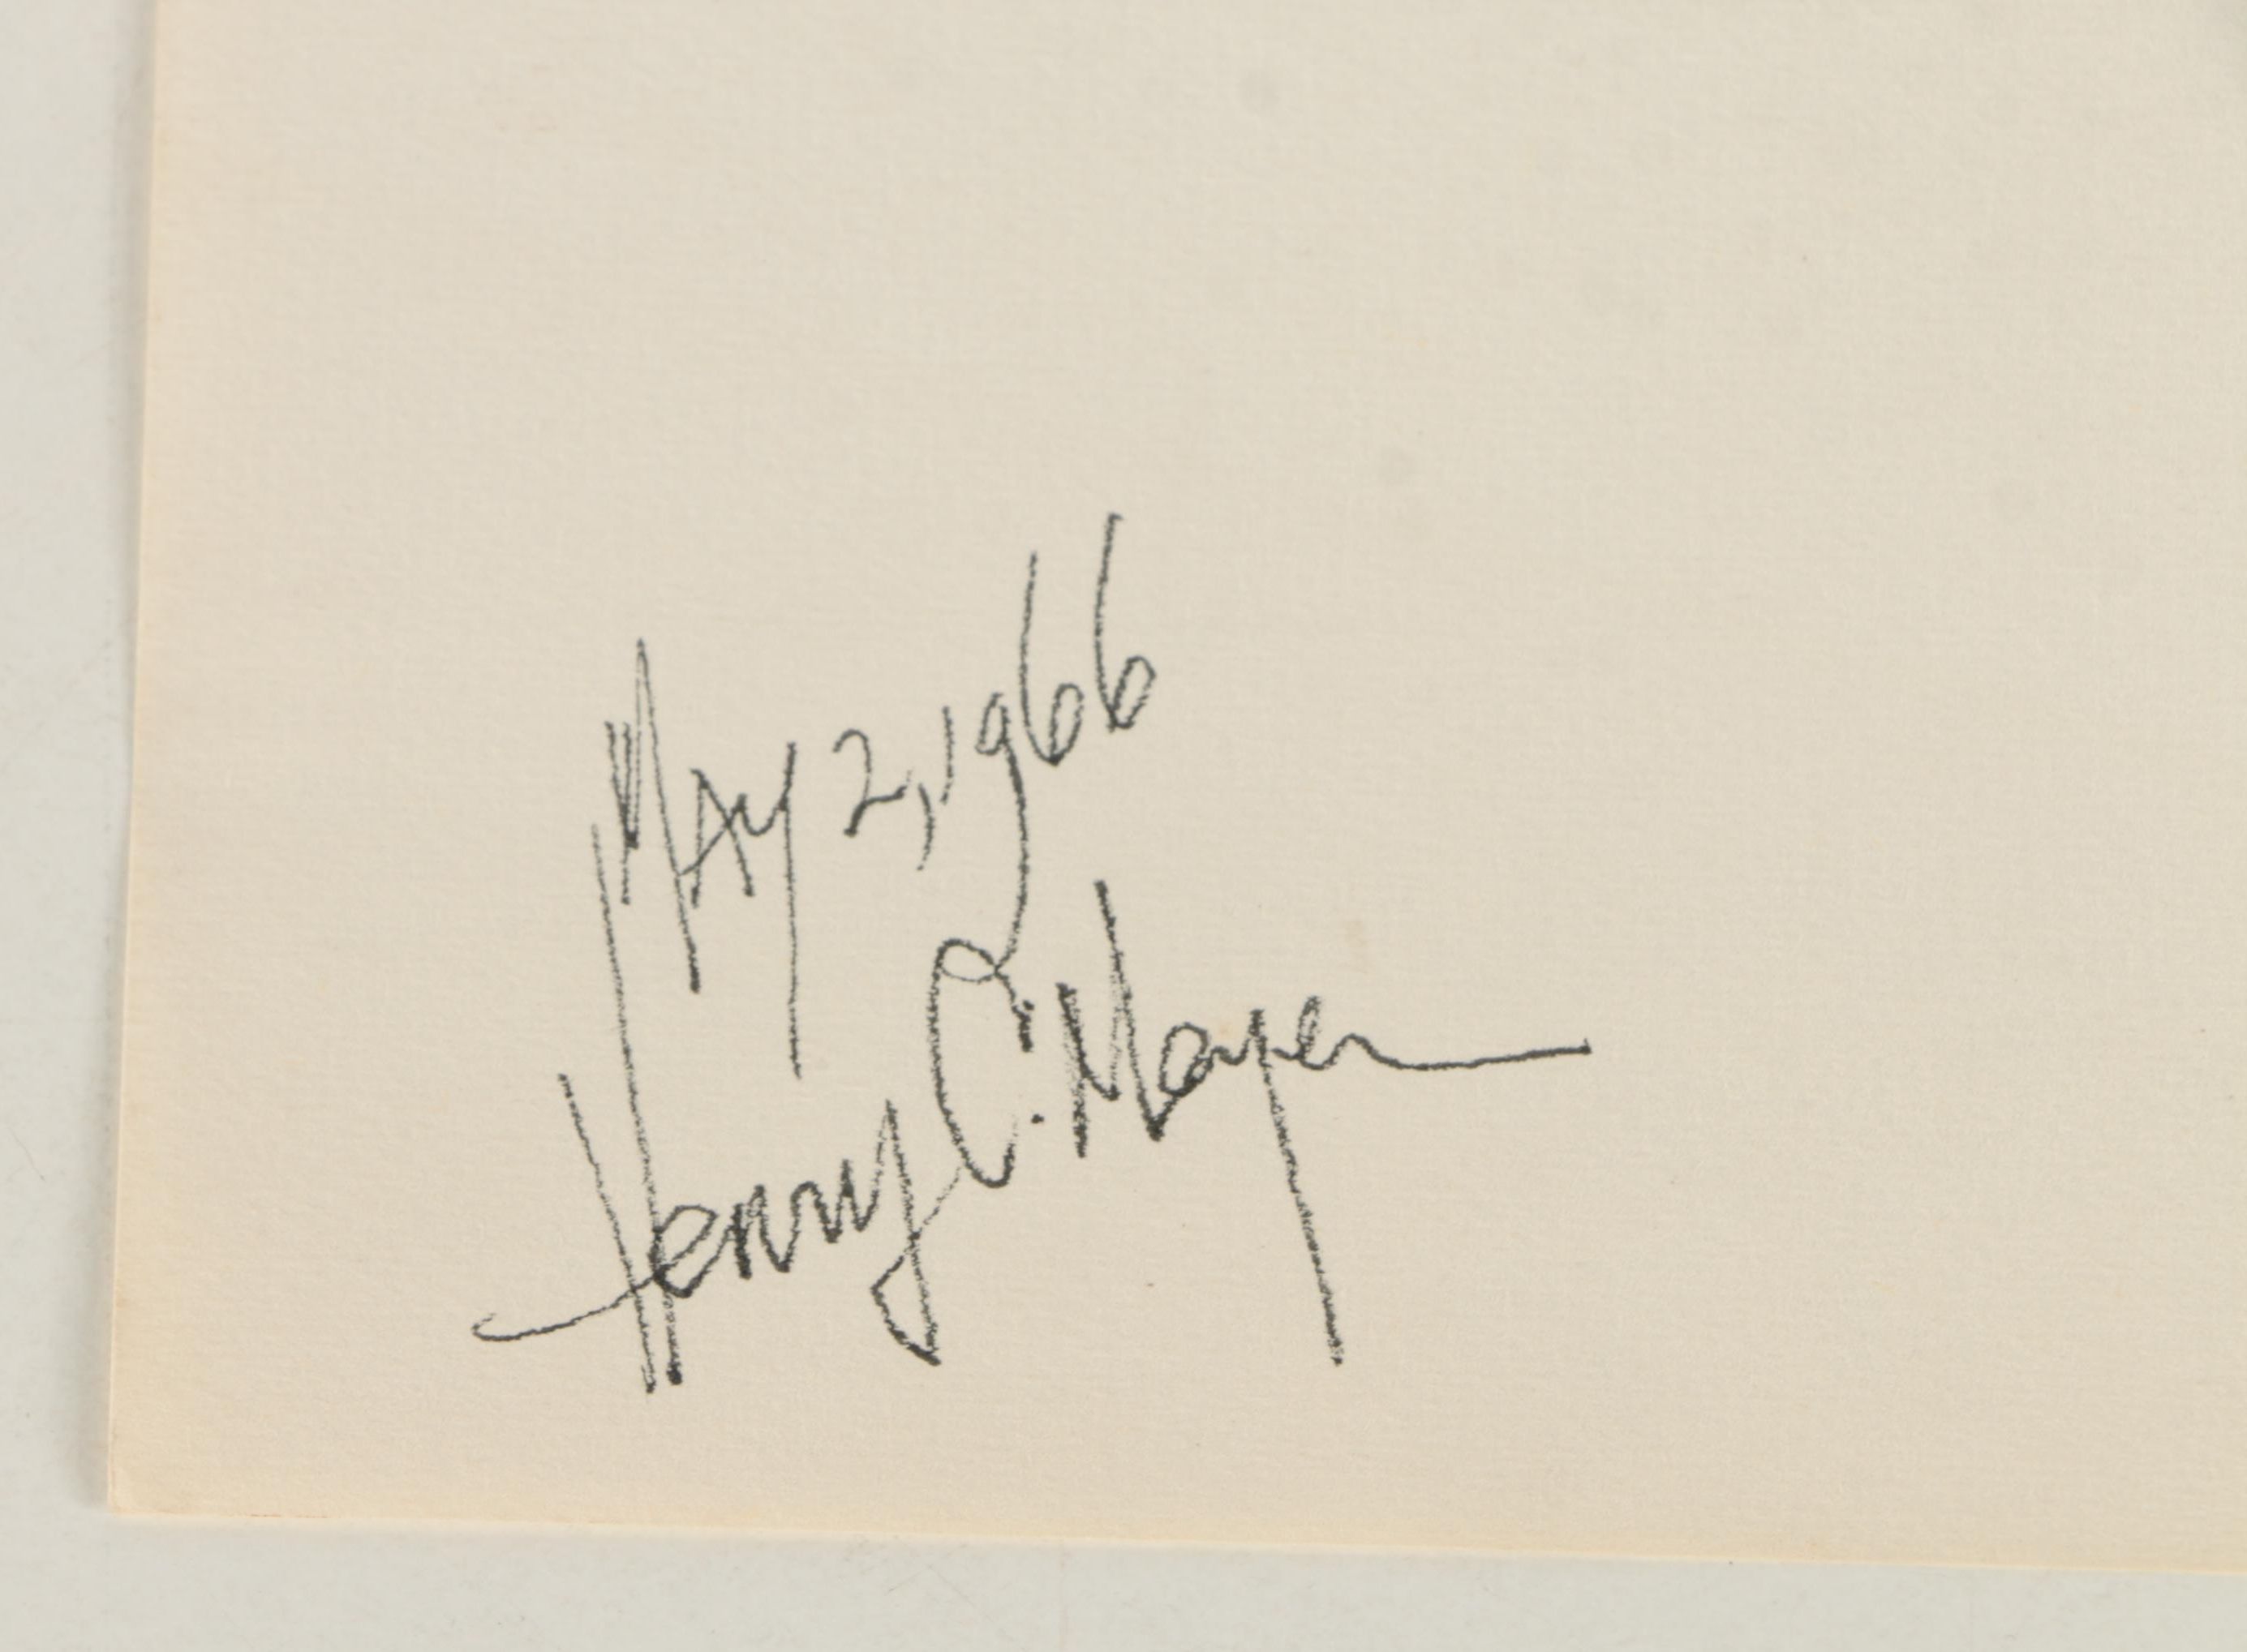 MAY 2, 1966
Henry C. Mayer